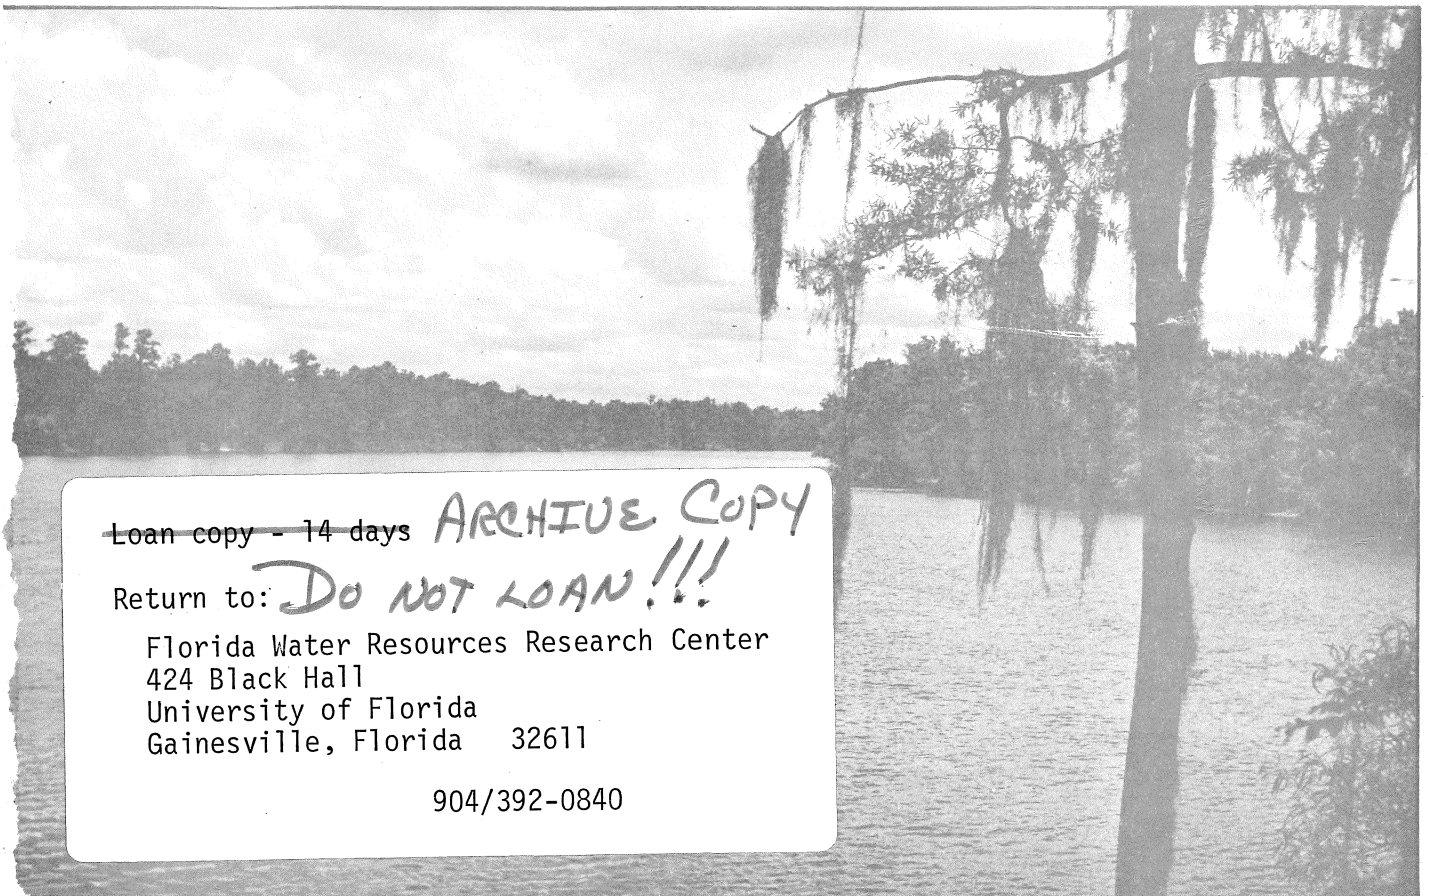 Loan copy - 14 days ARCHIVE COPY
Return to: DO NOT LOAN!!!
Florida Water Resources Research Center
424 Black Hall
University of Florida
Gainesville, Florida 32611
904/392-0840